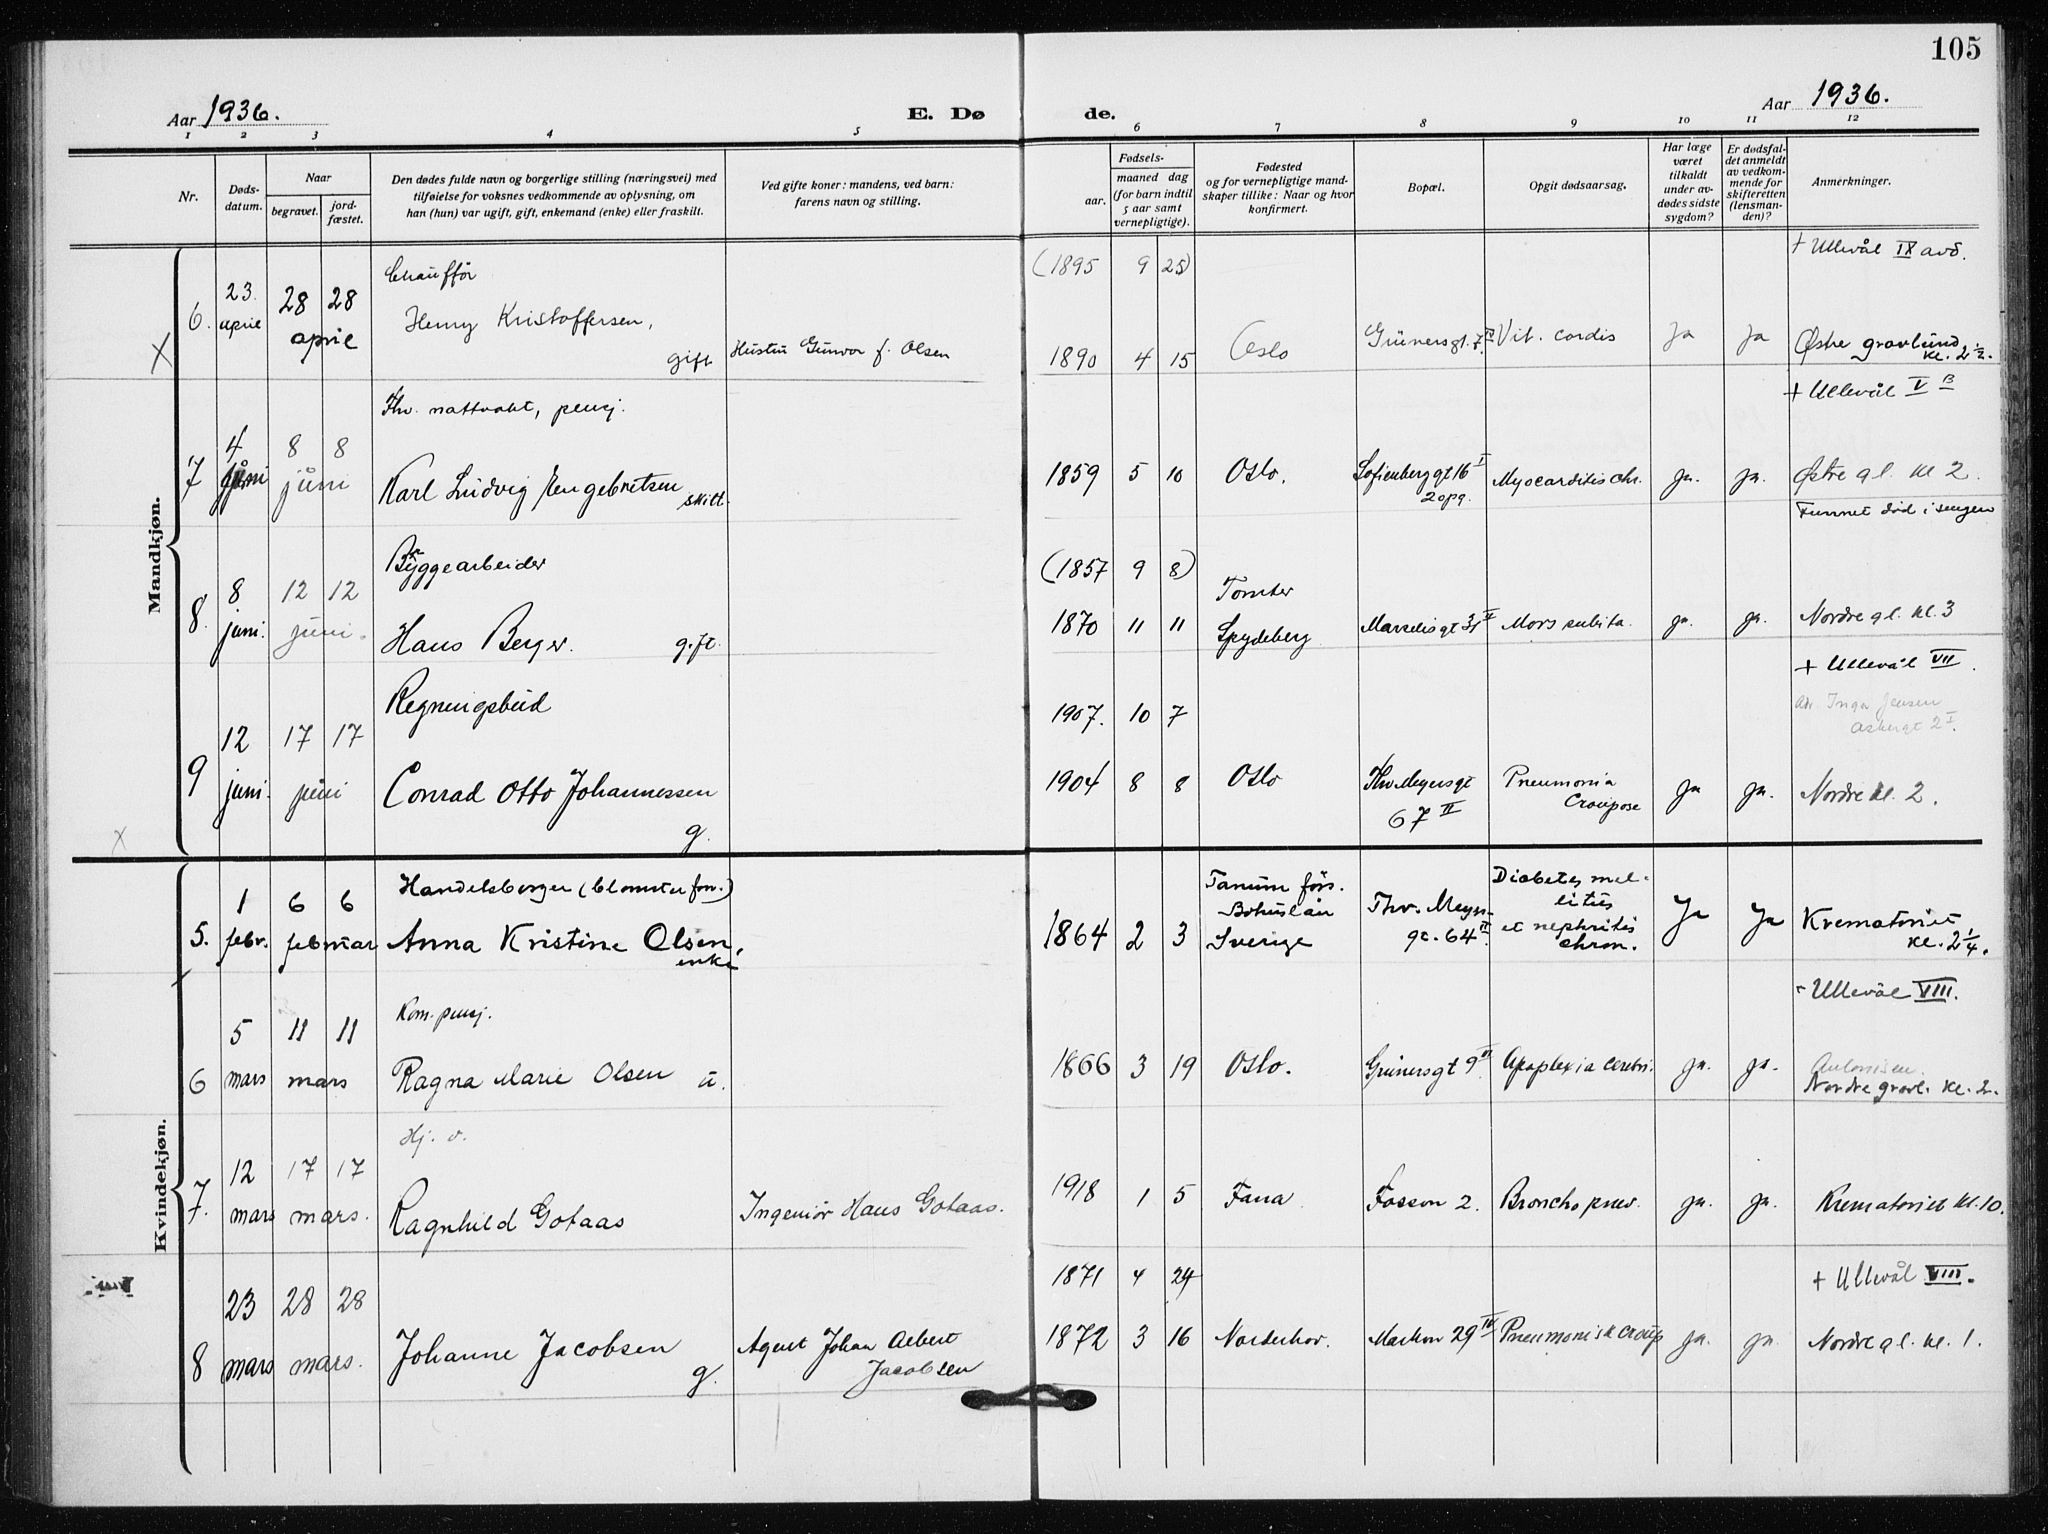 105
Aar 1936. E. Dø de. Aar 1936.
1 2 3 4 5 6 7 8 9 10 11 12
Nr.
Døds-
datum.
Naar
begravet.
jord-
fæstet.
Den dødes fulde navn og borgerlige stilling (næringsvei) med
tilføielse for voksnes vedkommende av oplysning, om
han (hun) var ugift, gift, enkemand (enke) eller fraskilt.
Ved gifte koner: mandens, ved barn:
farens navn og stilling.
Fødsels-
aar.
maaned dag
(for barn indtil
5 aar samt
vernepligtige).
Fødested
og for vernepligtige mand-
skaper tillike: Naar og hvor
konfirmert.
Bopæl.
Opgit dødsaarsag.
Har læge
været
tilkaldt
under av-
dødes sidste
sygdom?
Er dødsfal-
det anmeldt
av vedkom-
mende for
skifteretten
(lensman-
den)?
Anmerkninger.
Mandkjøn.
(1895 9 25) + Ullevål IX avd.
Chauffør
6. 23. april 28 28 april
Henry Kristoffersen,
gift Hustru Gunvor f. Olsen
1890 4 15 Oslo Grünersgt. 7 Vit. cordis Ja Ja Østre gravlund, kl. 2 1/2.
X
+ Ullevål V B
Thv. nattvakt, pensj.
7 4 juni 8 8 juni
Karl Ludvig Engebretsen skilt.
1859 5 10 Oslo. Sofienberggt 16 I 2 opg. Myocarditis chr. ja. ja. Østre gl. kl 2.
Funnet død i sengen
Byggearbeider
(1857 9 8)
8. 8 juni. 12 12 juni.
Hans Berger. gift.
1870 11 11 Tomter Spydeberg Marselisgt 31 II Mors subita. ja. ja. Nordre gl. kl. 3
+ Ullevål VII.
Regningsbud
1907. 10 7
Adr. Inga Jensen
Asbergt 2 I.
9 12 juni. 17 17 juni
Conrad Otto Johannessen
g.
1904 8 8 Oslo Thv. Meyersgt 67 II Pneumonia Croupose ja ja. Nordre kl. 2.
X
Kvindekjøn.
Handelsborger (blomsterforr.)
5. 1 febr. 6 6 februar
Anna Kristine Olsen,
enke
1864 2 3 Tanum förs. Bohuslän Sverige Thv. Meyers gt. 64 II. Diabetes mel- litus et nephritis chron. Ja Ja Krematoriet kl. 2 1/4.
+ Ullevål VIII.
Kom. pensj.
6 5 mars 11 11 mars
Ragna Marie Olsen u.
1866 3 19 Oslo. Grünersgt 9 II Apoplexia cerebri. ja. ja. Antonisen.
Nordre gravl. kl. 2.
Hj. v.
7. 12 mars 17 17 mars.
Ragnhild Gotaas Ingeniør Hans Gotaas.
1918 1 5 Fana Fosson 2. Broncho pnev. ja. ja. Krematoriet kl. 10.
1871 4 24 + Ullevål VIII.
8 23 mars 28 28 mars.
Johanne Jacobsen g. Agent Johan Albert
Jacobsen
1872 3 16 Norderhov. Markvn 29 IV Pneumonia croup ja. ja. Nordre gl. kl. 1.